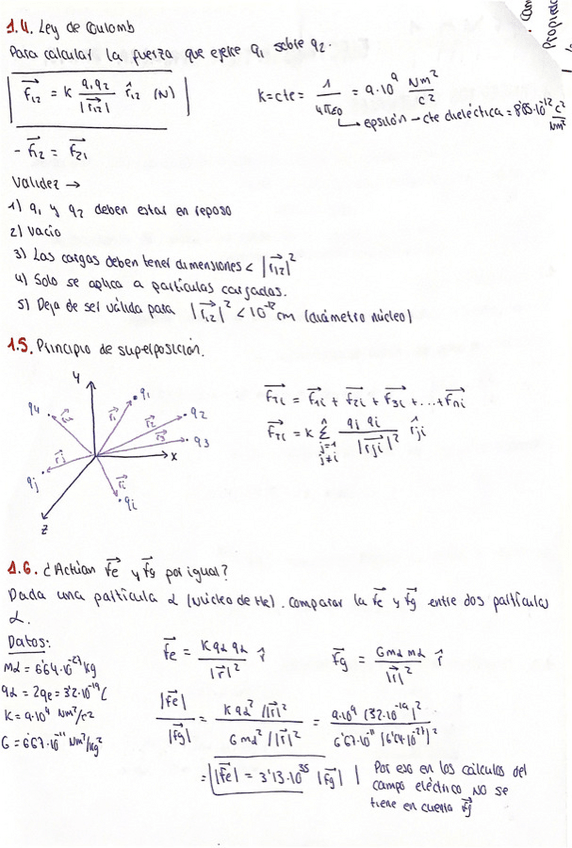 1.4. Ley de Coulomb
Para calcular la fuerza que ejerce q₁ sobre q₂.
F₁₂ = K q₁q₂ / |r₁₂| r̂₁₂ (N)
K=cte = 1 / 4πε₀ = 9·10⁹ Nm²/C²
epsilon - cte dieléctrica = 8'85·10⁻¹² C²/Nm²
- F₁₂ = F₂₁
Validez →
1) q₁ y q₂ deben estar en reposo
2) Vacío
3) Las cargas deben tener dimensiones < |r₁₂|²
4) Solo se aplica a partículas cargadas.
5) Deja de ser válida para |r₁₂|² < 10⁻¹² cm (diámetro núcleo)
1.5. Principio de superposición.
Y
q₄ r₄ r₁ q₁
r₂ q₂
r₃ q₃
X
qj rj
ri qi
Z
FTi = F1i + F2i + F3i + ... + Fni
FTi = K Σ j=1 j≠i qj qi / |rji|² r̂ji
1.6. ¿Actúan Fe y Fg por igual?
Dada una partícula α (núcleo de He). Comparar la Fe y Fg entre dos partículas
α.
Datos:
mα = 6'64·10⁻²⁷ kg
qα = 2qe = 3'2·10⁻¹⁹ C
K = 9·10⁹ Nm²/C²
G = 6'67·10⁻¹¹ Nm²/kg²
Fe = K qα qα / |r|² r̂
Fg = G mα mα / |r|² r̂
|Fe| / |Fg| = K qα² / |r|² / G mα² / |r|² = 9·10⁹ (3'2·10⁻¹⁹)² / 6'67·10⁻¹¹ (6'64·10⁻²⁷)²
= |Fe| = 3'13·10³⁵ |Fg|
Por eso en los cálculos del
campo eléctrico NO se
tiene en cuenta Fg